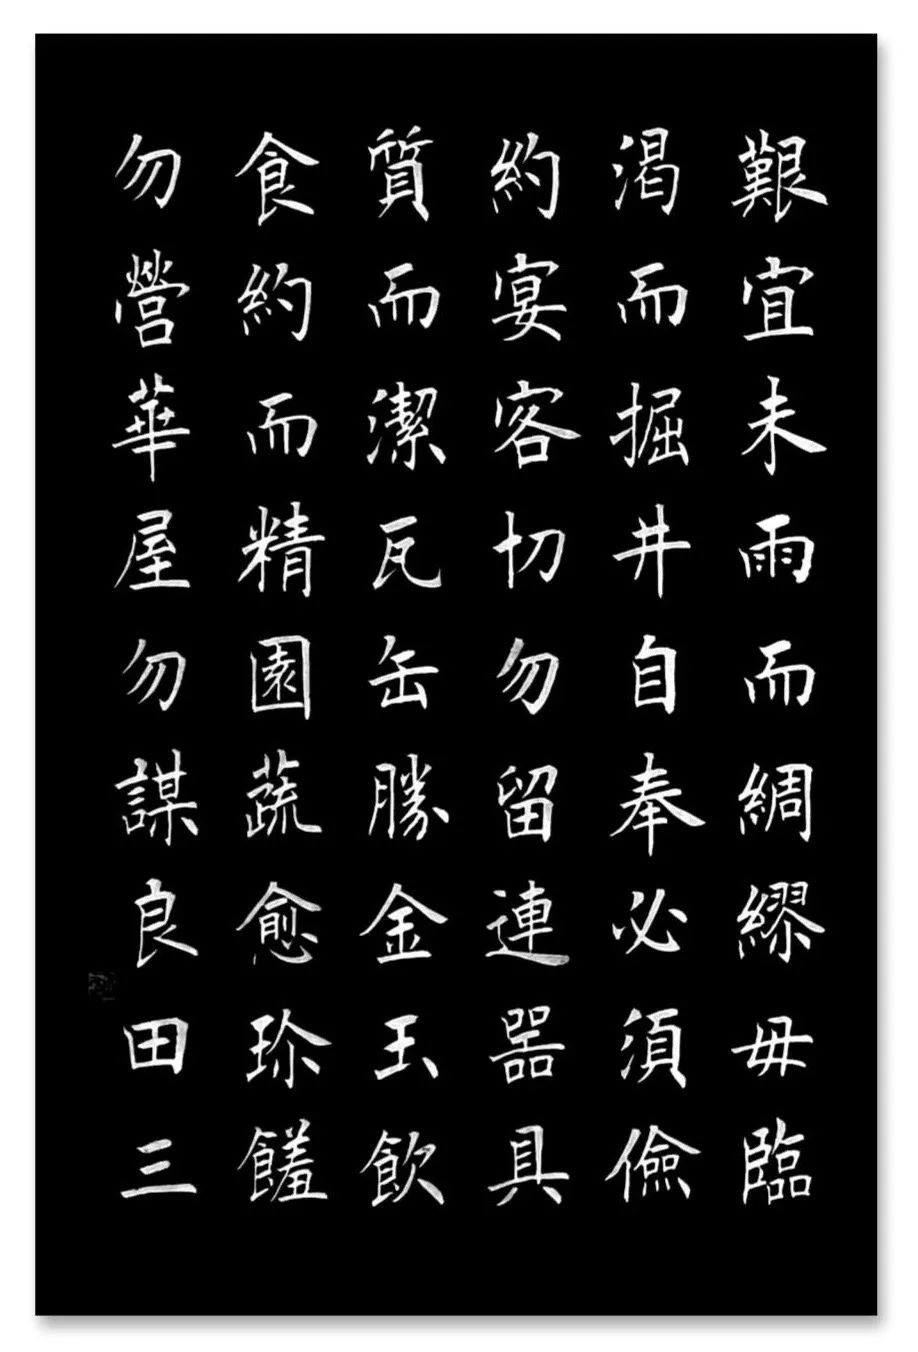 艱宜未雨而綢繆毋臨
渴而掘井自奉必須儉
約宴客切勿留連器具
質而潔瓦缶勝金玉飲
食約而精園蔬愈珍饈
勿營華屋勿謀良田三